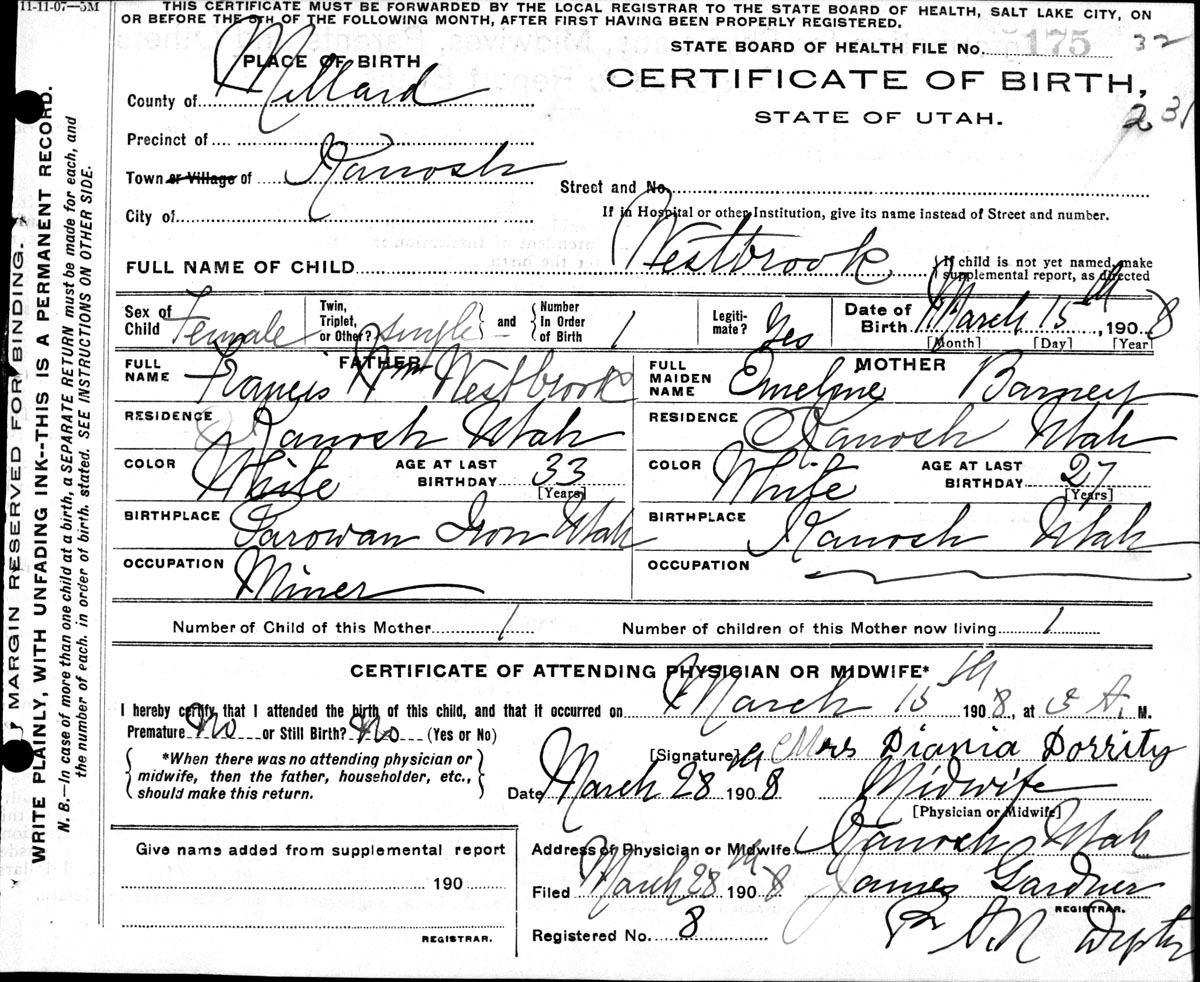 11-11-07—5M
THIS CERTIFICATE MUST BE FORWARDED BY THE LOCAL REGISTRAR TO THE STATE BOARD OF HEALTH, SALT LAKE CITY, ON
OR BEFORE THE 5TH OF THE FOLLOWING MONTH, AFTER FIRST HAVING BEEN PROPERLY REGISTERED.
STATE BOARD OF HEALTH FILE No. 175 32
PLACE OF BIRTH
CERTIFICATE OF BIRTH,
STATE OF UTAH.
231
County of Millard
Precinct of
Town or Village of Kanosh
Street and No.
City of
If in Hospital or other Institution, give its name instead of Street and number.
FULL NAME OF CHILD Westbrook
{If child is not yet named, make
supplemental report, as directed
Sex of Child Female
Twin, Triplet, or Other? Single
and
Number in Order of Birth 1
Legiti-mate? Yes
Date of Birth March 15th, 1908
[Month] [Day] [Year]
FATHER
FULL NAME Francis Wm Westbrook
RESIDENCE Kanosh Utah
COLOR White
AGE AT LAST BIRTHDAY 33
[Years]
BIRTHPLACE Parowan Iron Utah
OCCUPATION Miner
MOTHER
FULL MAIDEN NAME Emeline Barney
RESIDENCE Kanosh Utah
COLOR White
AGE AT LAST BIRTHDAY 27
[Years]
BIRTHPLACE Kanosh Utah
OCCUPATION
Number of Child of this Mother 1
Number of children of this Mother now living 1
CERTIFICATE OF ATTENDING PHYSICIAN OR MIDWIFE*
I hereby certify, that I attended the birth of this child, and that it occurred on March 15th 1908, at A. M.
Premature No or Still Birth? No (Yes or No)
{*When there was no attending physician or
midwife, then the father, householder, etc.,
should make this return.}
[Signature] Mrs Diania Dorrity
Date March 28th 1908 Midwife
[Physician or Midwife]
Address of Physician or Midwife Kanosh Utah
Filed March 28th 1908 James Gardner
REGISTRAR.
Registered No. 8
Pr A.N Depty
Give name added from supplemental report
190
REGISTRAR.
MARGIN RESERVED FOR BINDING.
WRITE PLAINLY, WITH UNFADING INK--THIS IS A PERMANENT RECORD.
N. B.—In case of more than one child at a birth, a SEPARATE RETURN must be made for each, and
the number of each, in order of birth, stated. SEE INSTRUCTIONS ON OTHER SIDE.